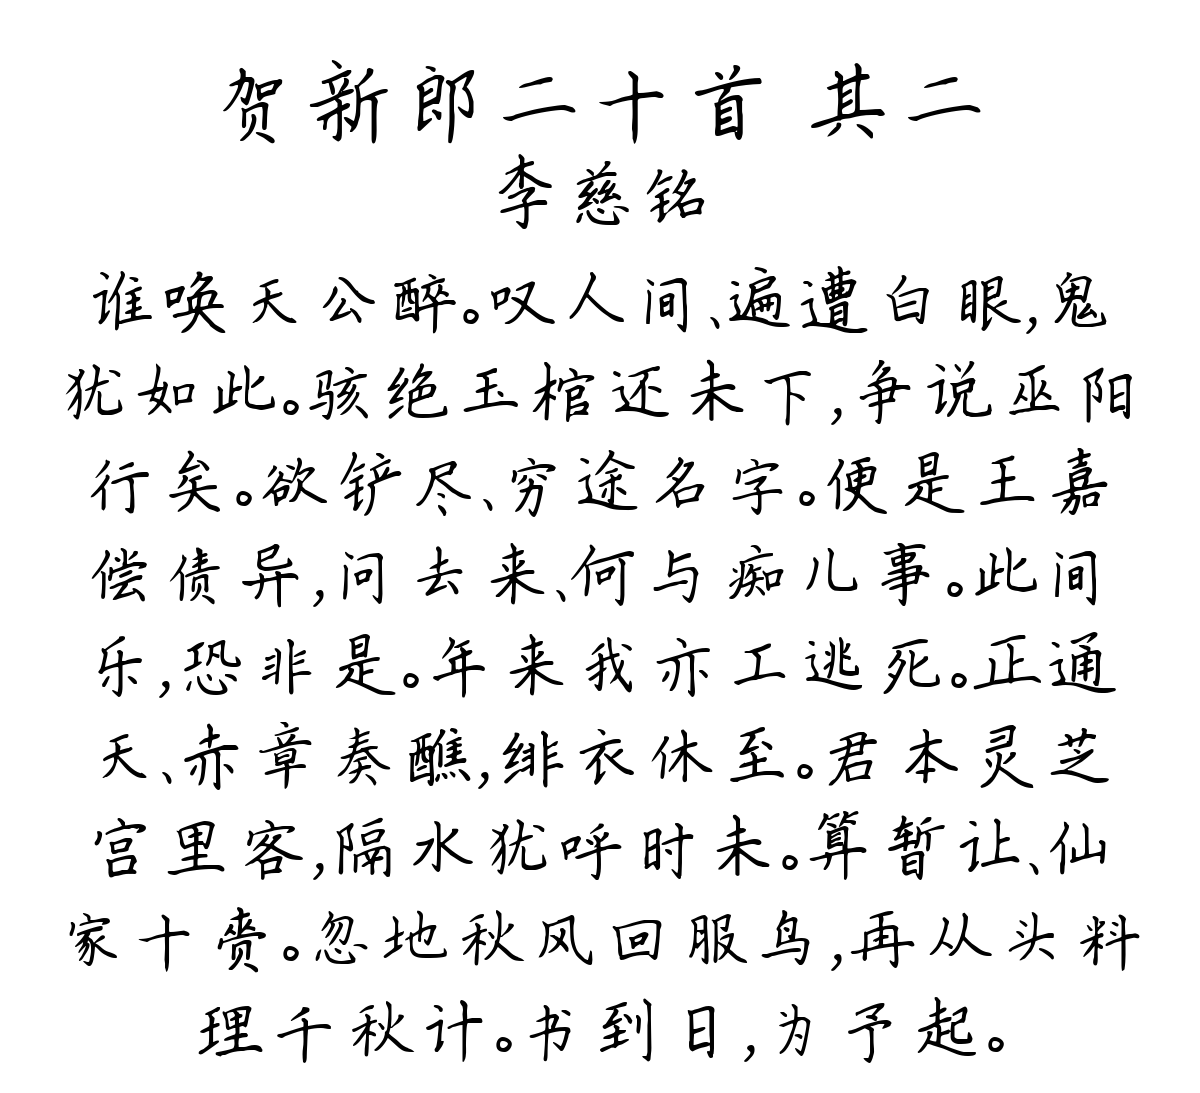 贺新郎二十首 其二
李慈铭
谁唤天公醉。叹人间、遍遭白眼,鬼
犹如此。骇绝玉棺还未下,争说巫阳
行矣。欲铲尽、穷途名字。便是王嘉
偿债异,问去来、何与痴儿事。此间
乐,恐非是。年来我亦工逃死。正通
天、赤章奏醮,绯衣休至。君本灵芝
宫里客,隔水犹呼时未。算暂让、仙
家十赉。忽地秋风回服鸟,再从头料
理千秋计。书到日,为予起。